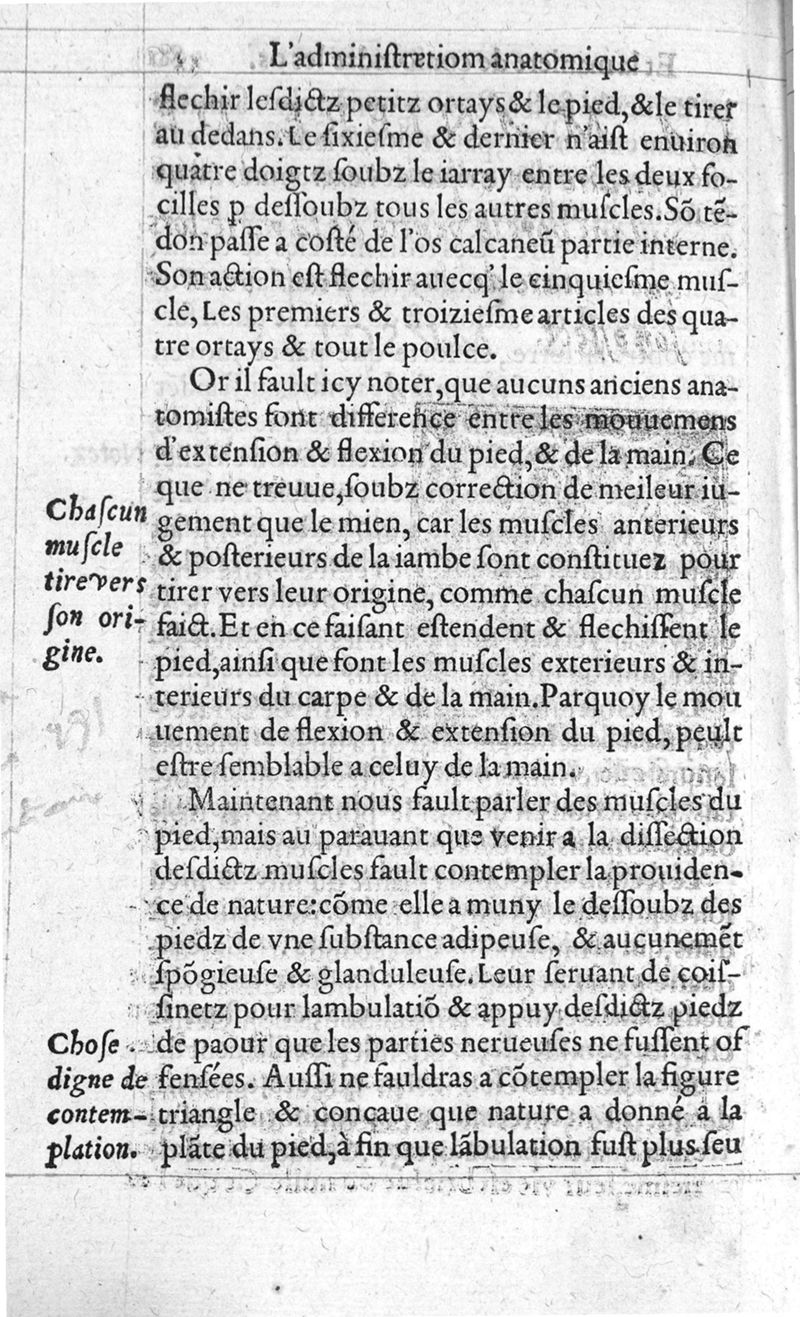 L'adminiſtretiom anatomique
flechir leſdictz petitz ortays & le pied, & le tirer
au dedans. Le ſixieſme & dernier n'aiſt enuiron
quatre doigtz ſoubz le iarray entre les deux fo-
cilles p deſſoubz tous les autres muſcles. Sō tē-
don paſſe a coſté de l'os calcaneū partie interne.
Son action eſt flechir auecq' le cinquieſme muſ-
cle, Les premiers & troizieſme articles des qua-
tre ortays & tout le poulce.
Or il fault icy noter, que aucuns anciens ana-
tomiſtes font difference entre les mouuemens
d'extenſion & flexion du pied, & de la main. Ce
que ne treuue, ſoubz correction de meileur iu-
gement que le mien, car les muſcles anterieurs
& poſterieurs de la iambe ſont conſtituez pour
tirer vers leur origine, comme chaſcun muſcle
faict. Et en ce faiſant eſtendent & flechiſſent le
pied, ainſi que font les muſcles exterieurs & in-
terieurs du carpe & de la main. Parquoy le mou
uement de flexion & extenſion du pied, peult
eſtre ſemblable a celuy de la main.
Maintenant nous fault parler des muſcles du
pied, mais au parauant que venir a la diſſection
deſdictz muſcles fault contempler la prouiden-
ce de nature: cōme elle a muny le deſſoubz des
piedz de vne ſubſtance adipeuſe, & aucunemēt
ſpōgieuſe & glanduleuſe. Leur ſeruant de coiſ-
ſinetz pour lambulatiō & appuy deſdictz piedz
de paour que les parties nerueuſes ne fuſſent of
fenſées. Auſſi ne fauldras a cōtempler la figure
triangle & concaue que nature a donné à la
plāte du pied, à fin que lābulation fuſt plus ſeu
Chaſcun
muſcle
tire vers
ſon ori-
gine.
Choſe
digne de
contem-
plation.